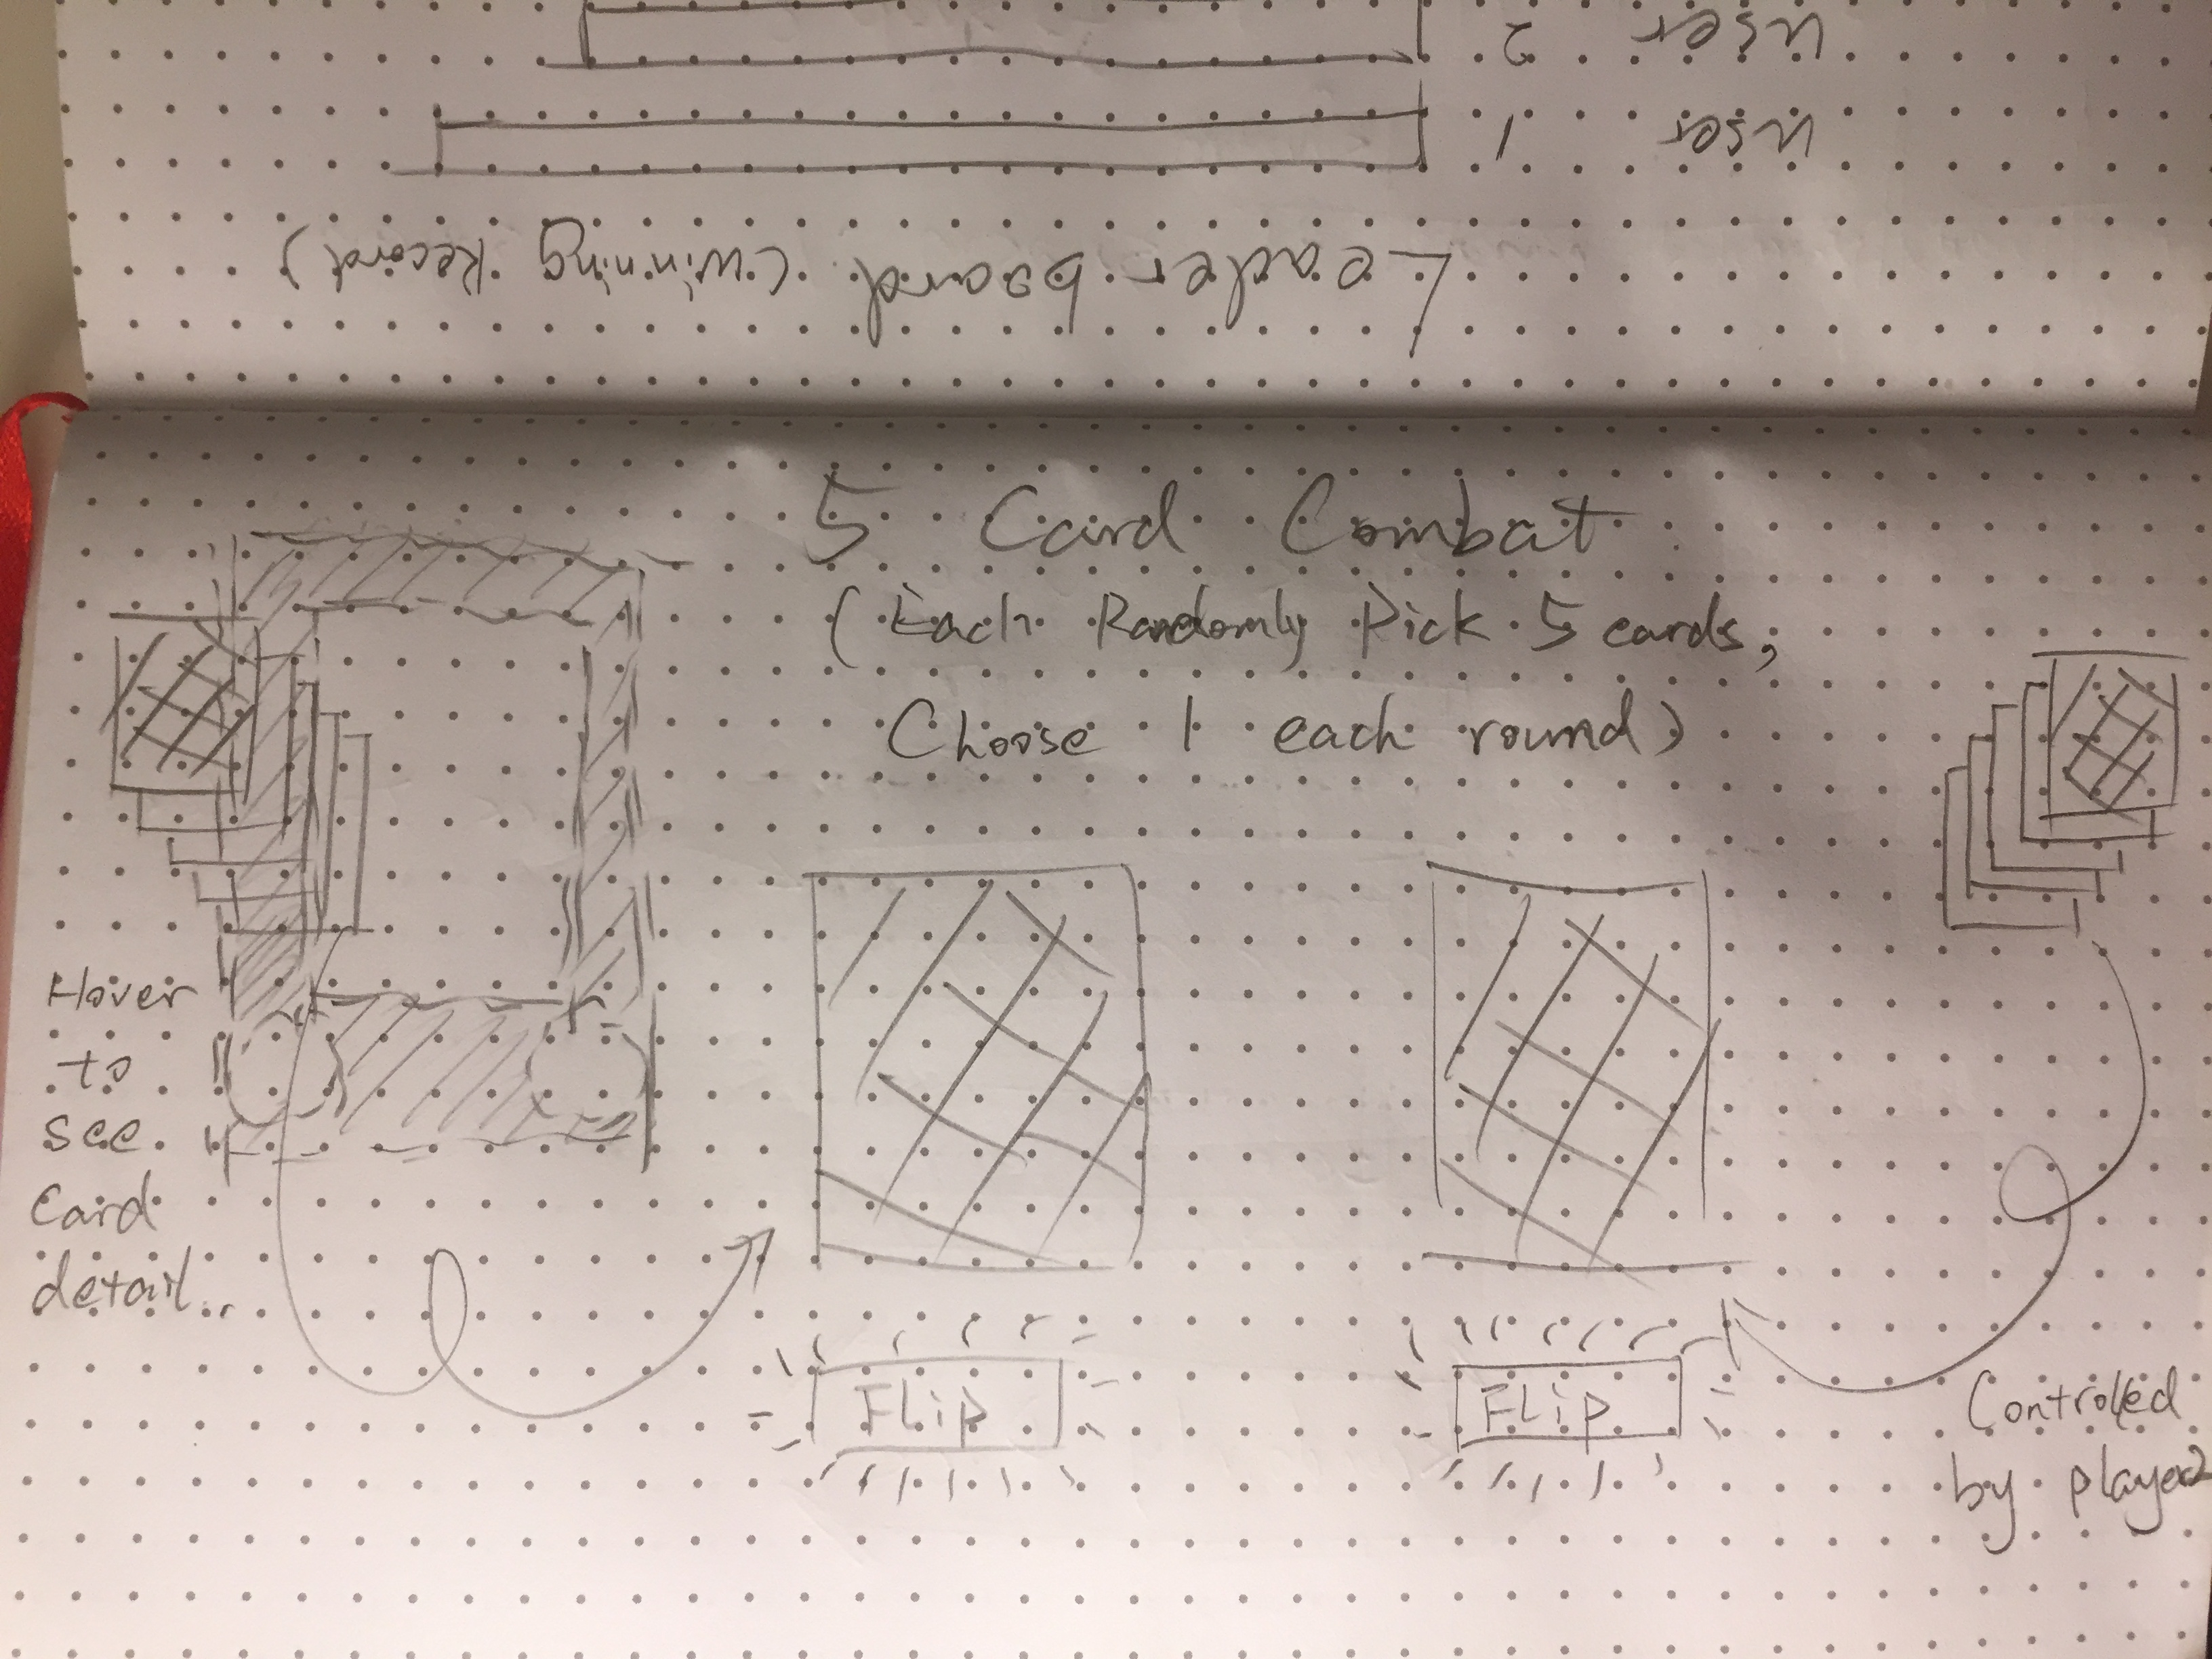 Leader board (Winning Record)
User 1
User 2
5 Card Combat
(Each Randomly Pick 5 cards,
Choose 1 each round)
Hover
to
see
Card
detail..
Flip
Flip
Controlled
by player2